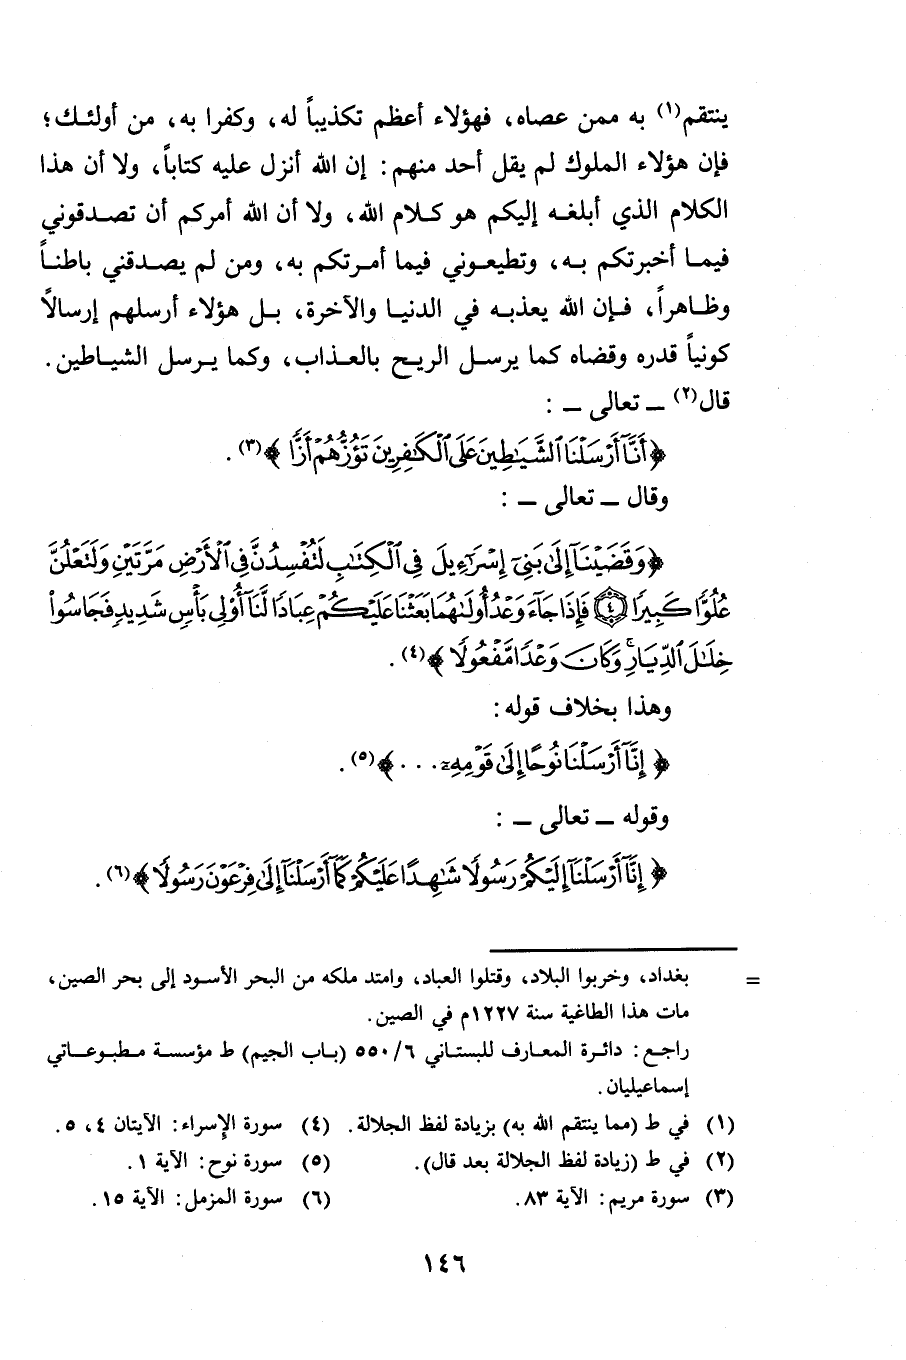 ينتقم(١) به ممن عصاه، فهؤلاء أعظم تكذيباً له، وكفرا به، من أولئك؛
فإن هؤلاء الملوك لم يقل أحد منهم: إن الله أنزل عليه كتاباً، ولا أن هذا
الكلام الذي أبلغه إليكم هو كلام الله، ولا أن الله أمركم أن تصدقوني
فيما أخبرتكم به، وتطيعوني فيما أمرتكم به، ومن لم يصدقني باطناً
وظاهراً، فإن الله يعذبه في الدنيا والآخرة، بل هؤلاء أرسلهم إرسالاً
كونياً قدره وقضاه كما يرسل الريح بالعذاب، وكما يرسل الشياطين.
قال(٢) ــ تعالى ــ :
﴿أَنَّآ أَرْسَلْنَا ٱلشَّيَٰطِينَ عَلَى ٱلْكَٰفِرِينَ تَؤُزُّهُمْ أَزًّا﴾(٣).
وقال ــ تعالى ــ :
﴿وَقَضَيْنَآ إِلَىٰ بَنِىٓ إِسْرَٰٓءِيلَ فِى ٱلْكِتَٰبِ لَتُفْسِدُنَّ فِى ٱلْأَرْضِ مَرَّتَيْنِ وَلَتَعْلُنَّ
عُلُوًّا كَبِيرًا ۝٤ فَإِذَا جَآءَ وَعْدُ أُولَىٰهُمَا بَعَثْنَا عَلَيْكُمْ عِبَادًا لَّنَآ أُو۟لِى بَأْسٍ شَدِيدٍ فَجَاسُوا۟
خِلَٰلَ ٱلدِّيَارِ ۚ وَكَانَ وَعْدًا مَّفْعُولًا﴾(٤).
وهذا بخلاف قوله:
﴿إِنَّآ أَرْسَلْنَا نُوحًا إِلَىٰ قَوْمِهِۦ...﴾(٥).
وقوله ــ تعالى ــ :
﴿إِنَّآ أَرْسَلْنَآ إِلَيْكُمْ رَسُولًا شَٰهِدًا عَلَيْكُمْ كَمَآ أَرْسَلْنَآ إِلَىٰ فِرْعَوْنَ رَسُولًا﴾(٦).
= بغداد، وخربوا البلاد، وقتلوا العباد، وامتد ملكه من البحر الأسود إلى بحر الصين،
مات هذا الطاغية سنة ١٢٢٧م في الصين.
راجع: دائرة المعارف للبستاني ٥٥٠/٦ (باب الجيم) ط مؤسسة مطبوعاتي
إسماعيليان.
(١) في ط (مما ينتقم الله به) بزيادة لفظ الجلالة. (٤) سورة الإسراء: الآيتان ٤، ٥.
(٢) في ط (زيادة لفظ الجلالة بعد قال). (٥) سورة نوح: الآية ١.
(٣) سورة مريم: الآية ٨٣. (٦) سورة المزمل: الآية ١٥.
١٤٦